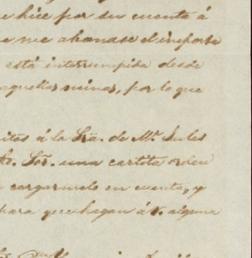 e hice por su cuenta á
e me abonase el importe
está interrumpida desde
aquellas minas, por lo que
itos á la Sra. de Mr. Jules
Sor. una cartita orden
cargarmelo en cuenta, y
para que hagan á V. alguna